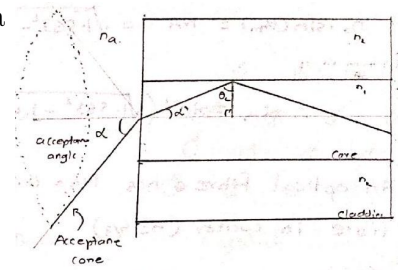 n
na.
n2
n1
θc
α'
α
acceptan
angle
Core
n2
Claddin
Acceptane
cone